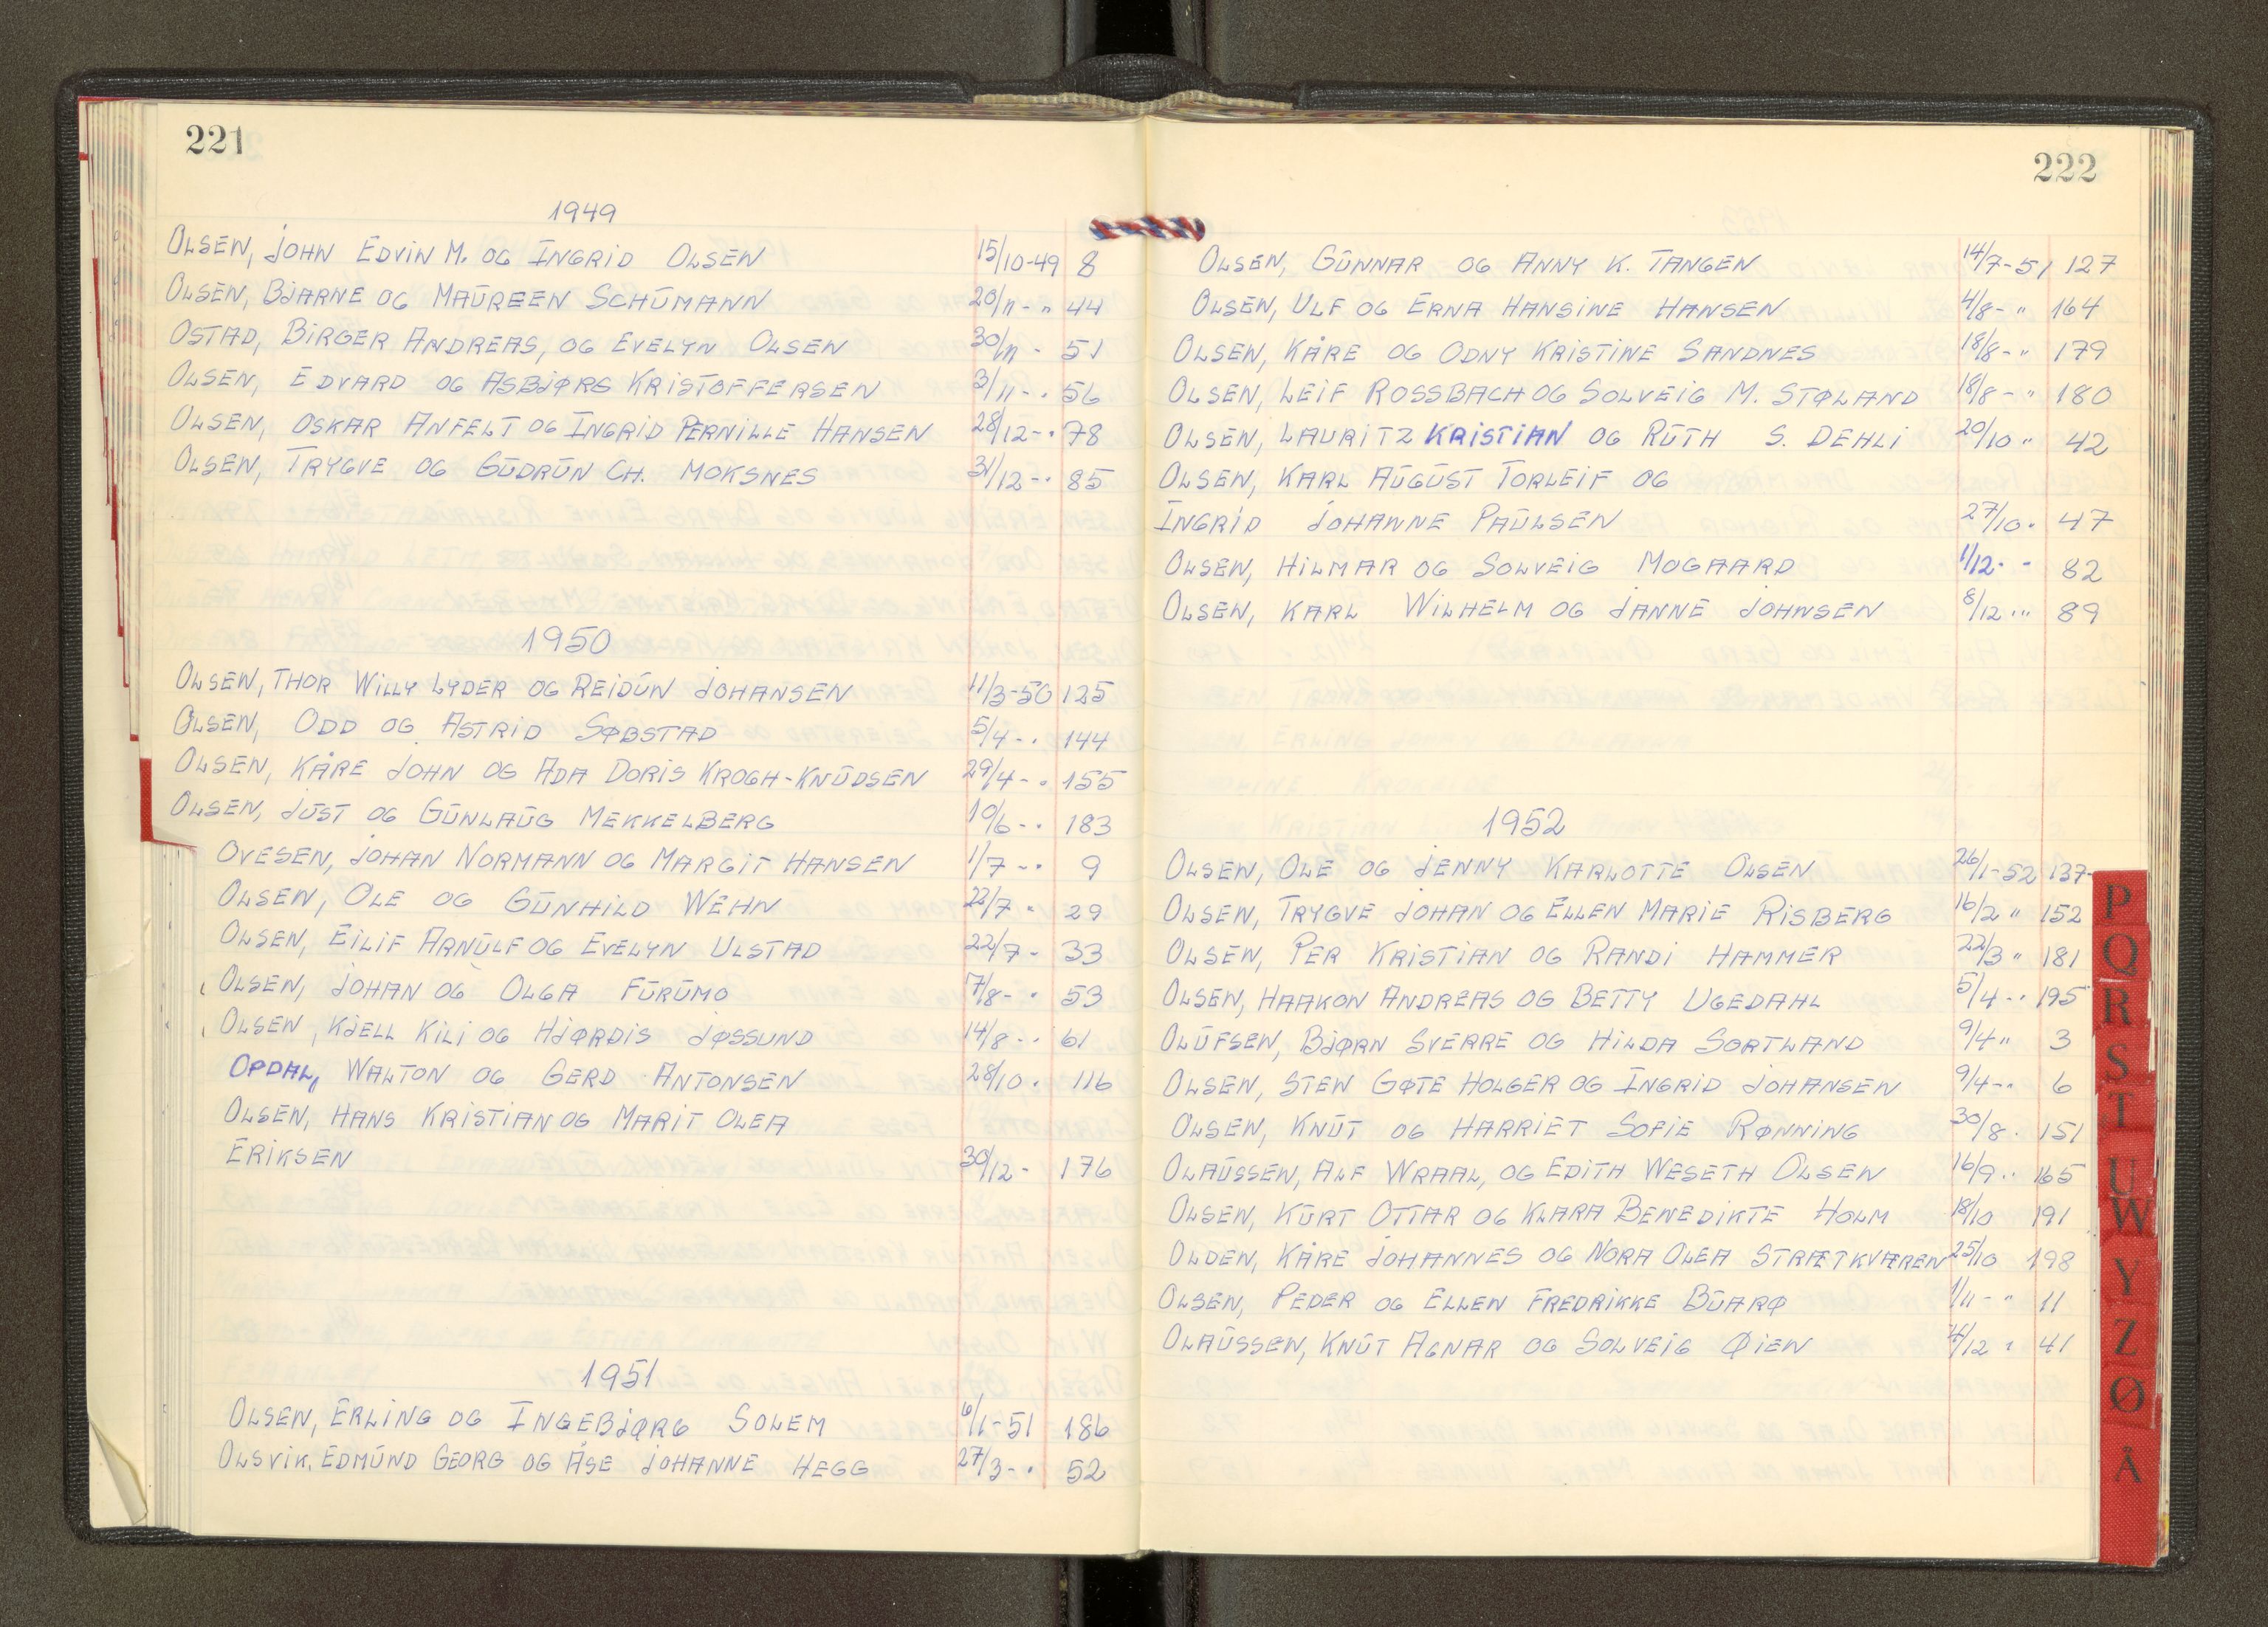 221
1949
OLSEN, JOHN EDVIN M. OG INGRID OLSEN 15/10-49 8
OLSEN, BJARNE OG MAUREEN SCHUMANN 20/11-" 44
OSTAD, BIRGER ANDREAS, OG EVELYN OLSEN 30/11 - 51
OLSEN, EDVARD OG ASBJØRG KRISTOFFERSEN 3/11-. 56
OLSEN, OSKAR ANFELT OG INGRID PERNILLE HANSEN 28/12-. 78
OLSEN, TRYGVE OG GUDRUN CH. MOKSNES 31/12-. 85
1950
OLSEN, THOR WILLY LYDER OG REIDUN JOHANSEN 11/3-50 125
OLSEN, ODD OG ASTRID SØBSTAD 5/4-. 144
OLSEN, KÅRE JOHN OG ADA DORIS KROGH-KNUDSEN 29/4-. 155
OLSEN, JUST OG GUNLAUG MEKKELBERG 10/6-. 183
OVESEN, JOHAN NORMANN OG MARGIT HANSEN 1/7-. 9
OLSEN, OLE OG GUNHILD WEHN 22/7 - 29
OLSEN, EILIF ARNULF OG EVELYN ULSTAD 22/7 - 33
OLSEN, JOHAN OG OLGA FURUMO 7/8-. 53
OLSEN, KJELL KILI OG HJØRDIS JØSSUND 14/8-. 61
OPDAL, WALTON OG GERD ANTONSEN 28/10. 116
OLSEN, HANS KRISTIAN OG MARIT OLEA
ERIKSEN 30/12- 176
1951
OLSEN, ERLING OG INGEBJØRG SOLEM 6/1-51 186
OLSVIK, EDMUND GEORG OG ÅSE JOHANNE HEGG 27/3-. 52
222
OLSEN, GUNNAR OG ANNY K. TANGEN 14/7-51 127
OLSEN, ULF OG ERNA HANSINE HANSEN 4/8-" 164
OLSEN, KÅRE OG ODNY KRISTINE SANDNES 18/8-" 179
OLSEN, LEIF ROSSBACH OG SOLVEIG M. STØLAND 18/8-" 180
OLSEN, LAURITZ KRISTIAN OG RUTH S. DEHLI 20/10 " 42
OLSEN, KARL AUGUST TORLEIF OG
INGRID JOHANNE PAULSEN 27/10. 47
OLSEN, HILMAR OG SOLVEIG MOGAARD 1/12-- 82
OLSEN, KARL WILHELM OG JANNE JOHNSEN 8/12 " 89
1952
OLSEN, OLE OG JENNY KARLOTTE OLSEN 26/1-52 137-
OLSEN, TRYGVE JOHAN OG ELLEN MARIE RISBERG 16/2 " 152
OLSEN, PER KRISTIAN OG RANDI HAMMER 22/3 " 181
OLSEN, HAAKON ANDREAS OG BETTY UGEDAHL 5/4-. 195
OLUFSEN, BJØRN SVERRE OG HILDA SORTLAND 9/4 " 3
OLSEN, STEN GØTE HOLGER OG INGRID JOHANSEN 9/4-" 6
OLSEN, KNUT OG HARRIET SOFIE RØNNING 30/8. 151
OLAUSSEN, ALF WRAAL, OG EDITH WESETH OLSEN 16/9.. 165
OLSEN, KURT OTTAR OG KLARA BENEDIKTE HOLM 18/10 191
OLDEN, KÅRE JOHANNES OG NORA OLEA STRÆTKVÆREN 25/10 198
OLSEN, PEDER OG ELLEN FREDRIKKE BUARØ 1/11-" 11
OLAUSSEN, KNUT AGNAR OG SOLVEIG ØIEN 4/12 " 41
P
Q
R
S
T
U
W
Y
Z
Ø
Å